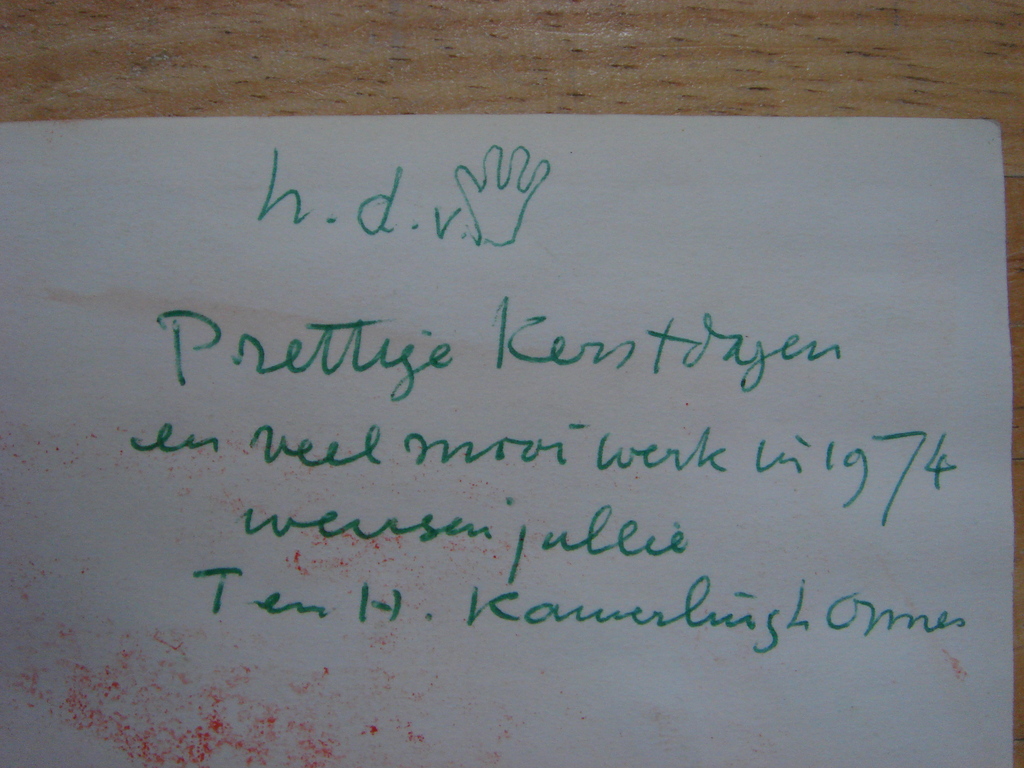 h. d. v.
Prettige Kerstdagen
en veel mooi werk in 1974
wensen jullie
T en H. Kamerlingh Onnes